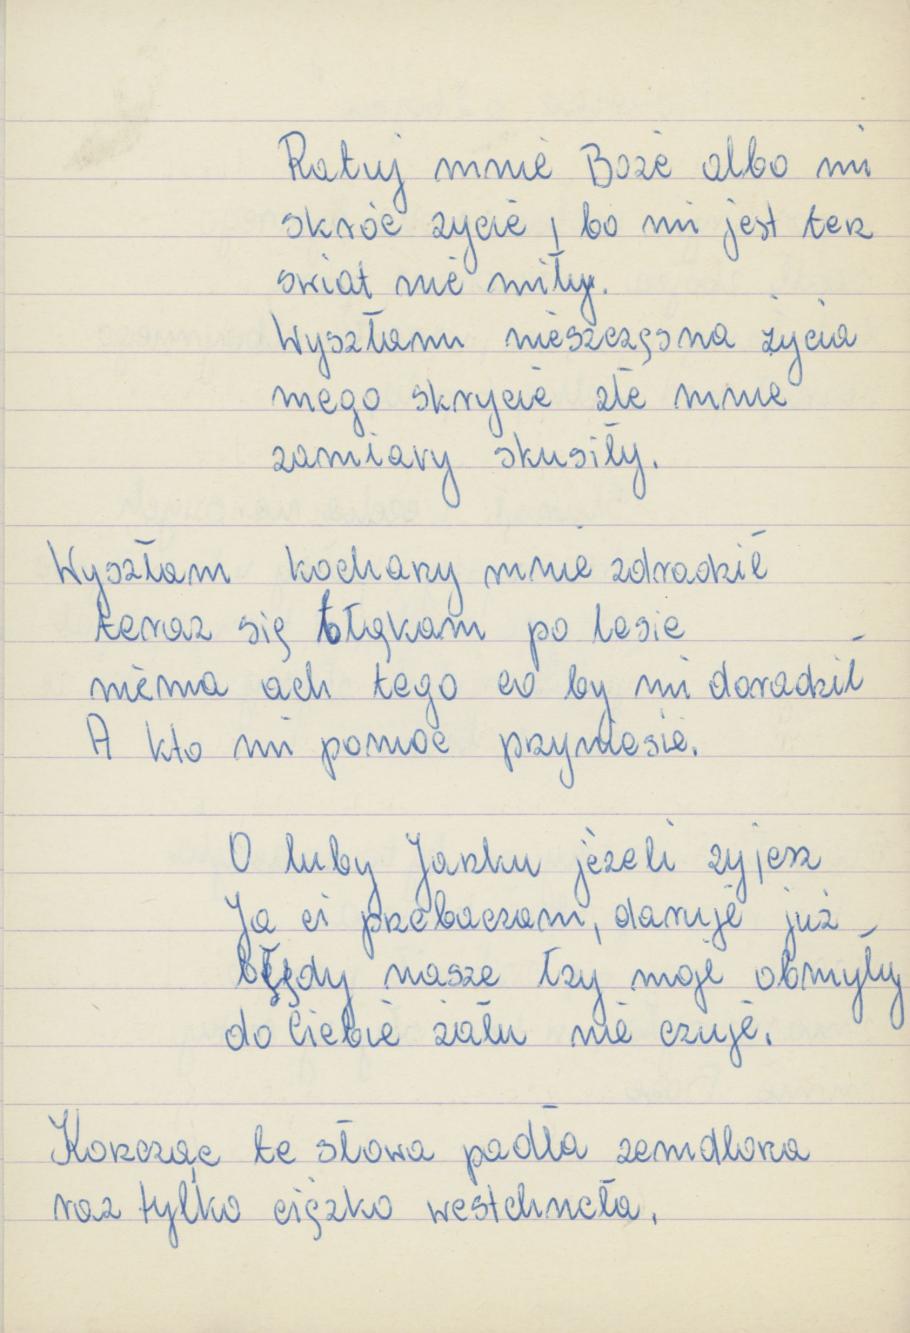 Ratuj mnie Boże albo mi
skróć zycie, bo mi jest ten
swiat nie miły.
Wyszłam nieszczęsna życia
mego skrycie złe mnie
zamiary skusiły.
Wyszłam kochany mnie zdradził
teraz się błąkam po lesie
nièma ach tego co by mi doradził
A kto mi pomoc przyniesie.
O luby Janku jeżeli zyjesz
Ja ci przebaczam, daruje już
błędy nasze łzy moje obmyły
do Ciebie żalu nie czuje.
Kończąc te słowa padła zemdlona
raz tylko ciężko westchneła.